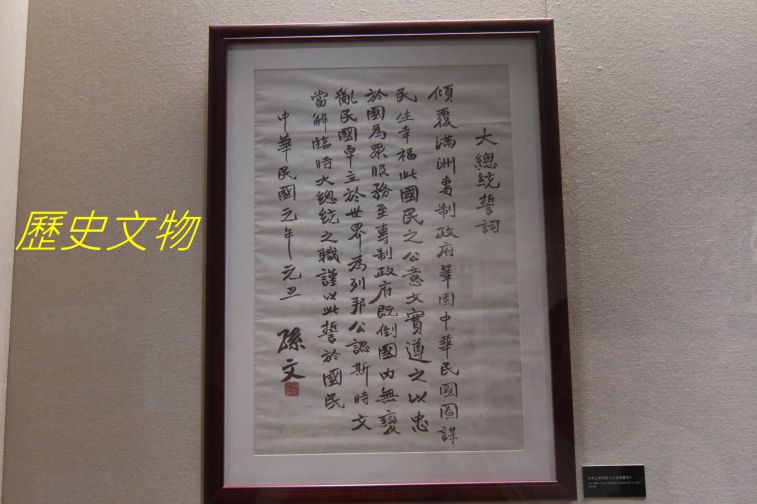 大總統誓詞
傾覆滿洲專制政府鞏固中華民國圖謀
民生幸福此國民之公意文實遵之以忠
於國為眾服務至專制政府既倒國內無變
亂民國卓立於世界為列邦公認斯時文
當解臨時大總統之職謹以此誓於國民
中華民國元年元旦
孫文
歷史文物